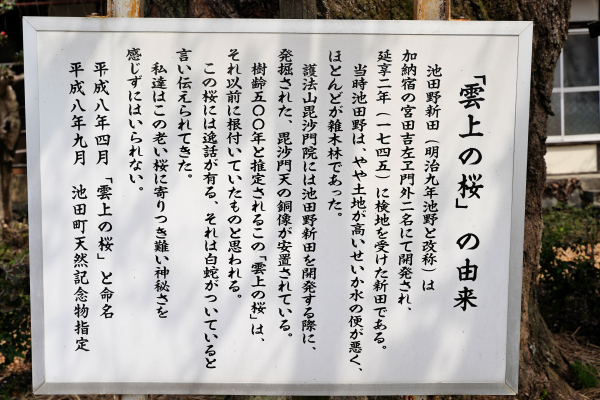 「雲上の桜」の由来
池田野新田（明治九年池野と改称）は
加納宿の宮田吉左ヱ門外二名にて開発され、
延享二年（一七四五）に検地を受けた新田である。
当時池田野は、やや土地が高いせいか水の便が悪く、
ほとんどが雑木林であった。
護法山毘沙門院には池田野新田を開発する際に、
発掘された、毘沙門天の銅像が安置されている。
樹齢五〇〇年と推定されるこの「雲上の桜」は、
それ以前に根付いていたものと思われる。
この桜には逸話が有る、それは白蛇がついていると
言い伝えられてきた。
私達はこの老い桜に寄りつき難い神秘さを
感じずにはいられない。
平成八年四月　「雲上の桜」と命名
平成八年九月　池田町天然記念物指定